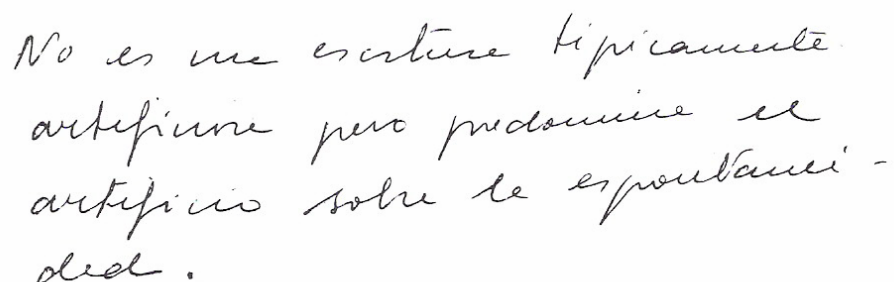 No es una escritura tipicamente
artificiosa pero predomina el
artificio sobre la espontanei-
dad.